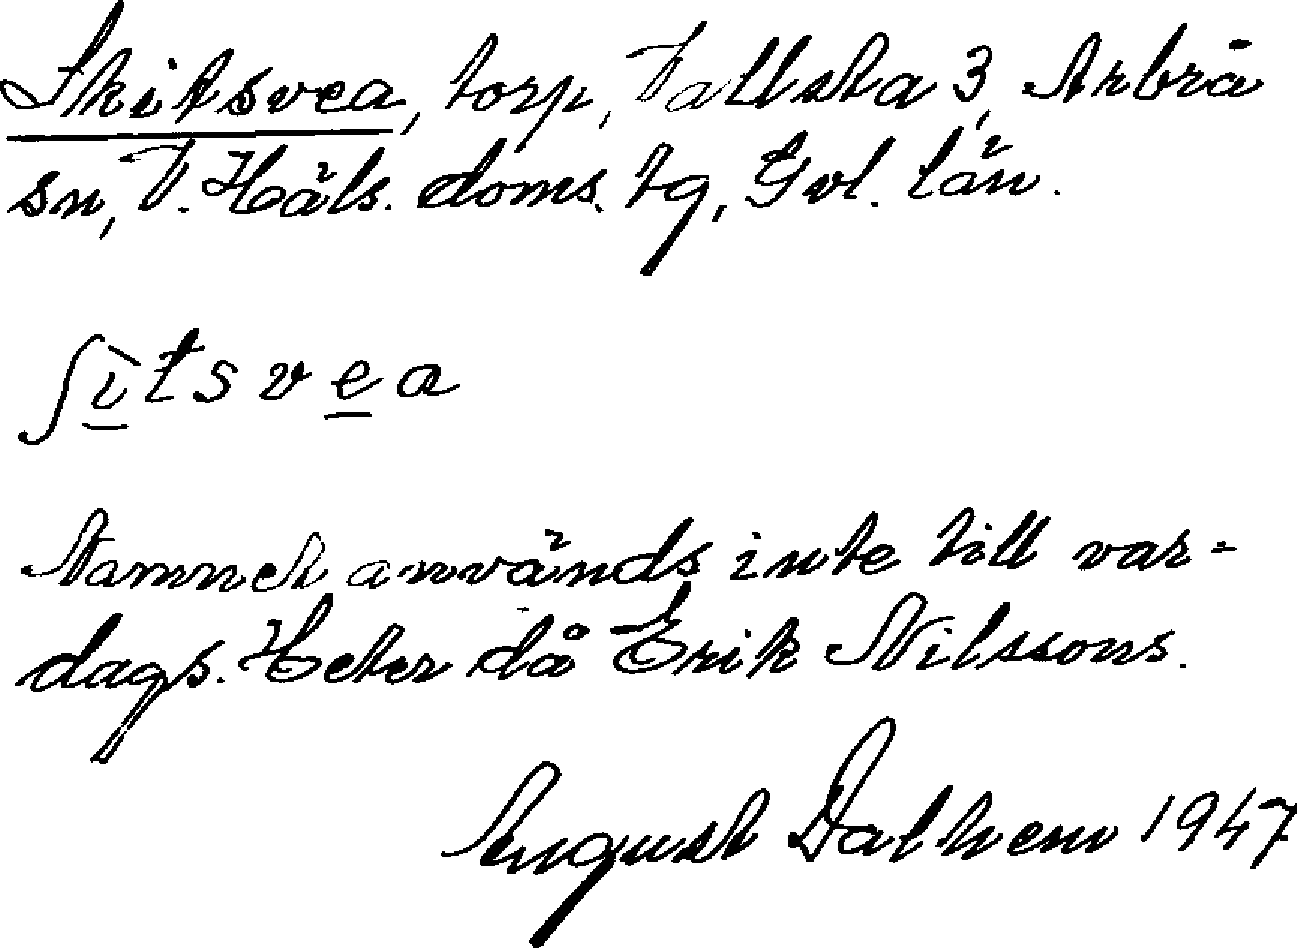 Skitsvea, torp, Vallsta 3, Arbrå
sn, V. Häls. doms. tg, Gvl. län.
ʃì̱tsve̱a
Namnet används inte till var-
dags. Heter då Erik Nilssons.
August Dalhem 1947